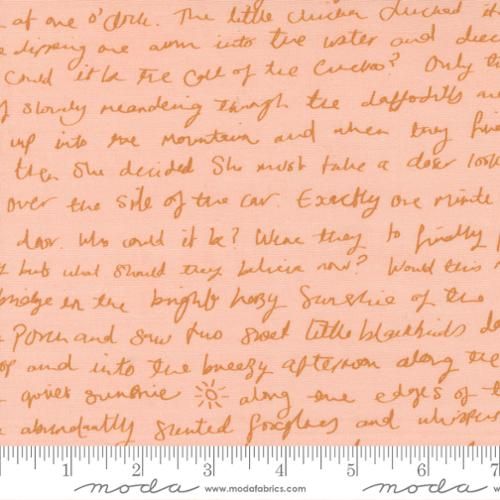 at one o'clock. The little chicken clucked it
dipping one arm into the water and
could it be the call of the cuckoo? Only
slowly meandering through the daffodils
up into the mountain and when they
then she decided she must take a closer look
over the side of the car. Exactly one minute
door. Who could it be? Were they to finally
but what should they believe now? Would this
bridge in the bright hazy sunshine of the
porch and saw two sweet little blackbirds
and into the breezy afternoon along the
quiet sunshine along the edges of
abundantly scented foxgloves and
1 2 3 4 5 6 7
moda www.modafabrics.com moda